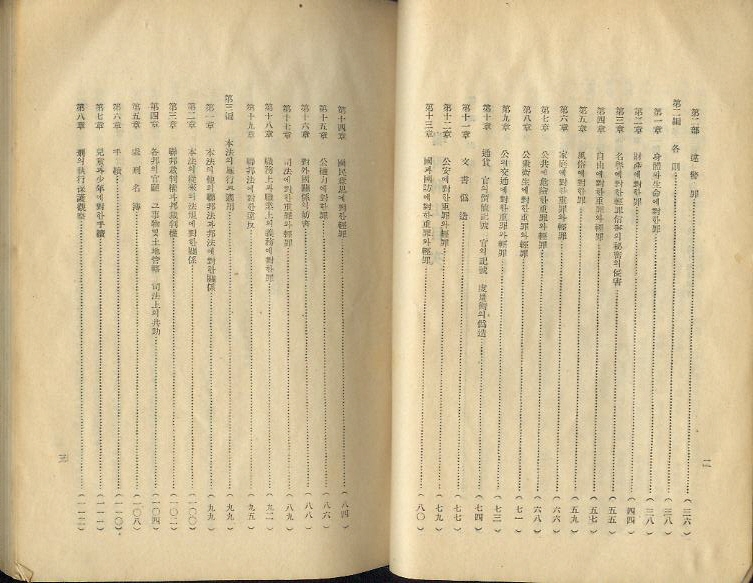 第二部 違警罪 (三六)
第二編 各則 (三八)
第一章 身體와生命에對한罪 (三八)
第二章 財產에對한罪 (四四)
第三章 名譽에對한輕罪信書의秘密의侵害 (五五)
第四章 自由에對한重罪와輕罪 (五七)
第五章 風俗에對한罪 (五九)
第六章 家庭에對한重罪와輕罪 (六八)
第七章 公共에危險한重罪와輕罪 (六八)
第八章 公衆衛生에對한重罪와輕罪 (七一)
第九章 公的交通에對한重罪와輕罪 (七三)
第十章 通貨 官의價値記號 官의記號 度量衡의僞造 (七四)
第十一章 文書僞造 (七七)
第十二章 公安에對한重罪와輕罪 (七九)
第十三章 國과國防에對한重罪와輕罪 (八〇)
二
第十四章 國民意思에對한輕罪 (八四)
第十五章 公權力에對한罪 (八六)
第十六章 對外國關係의妨害 (八八)
第十七章 司法에對한重罪와輕罪 (八九)
第十八章 職務上과職業上의義務에對한罪 (九二)
第十九章 聯邦法에對한違反 (九五)
第三編 本法의施行과適用 (九九)
第一章 本法의他의聯邦法과邦法에對한關係 (九九)
第二章 本法의從來의法規에對한關係 (一〇〇)
第三章 聯邦裁判權과邦裁判權 (一〇二)
第四章 各邦의官廳 그事物及土地管轄 司法上의共助 (一〇四)
第五章 處刑名簿 (一〇八)
第六章 手續 (一一〇)
第七章 兒童과少年에對한手續 (一一一)
第八章 刑의執行保護觀察 (一一二)
三